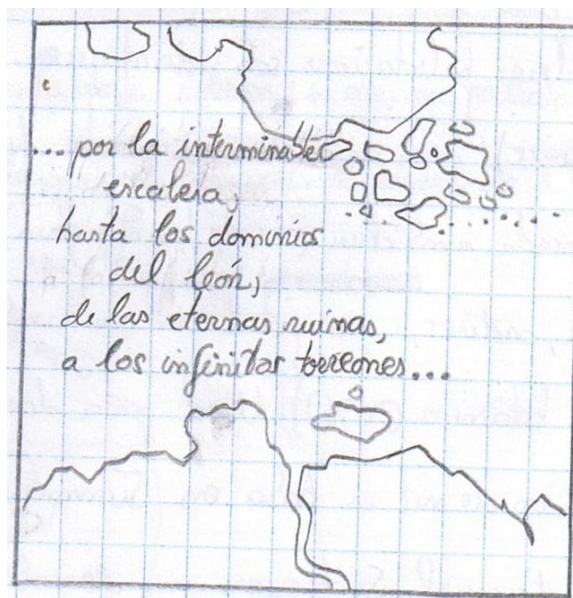 ... por la interminable
escalera,
hasta los dominios
del león,
de las eternas ruinas,
a los infinitos torreones...